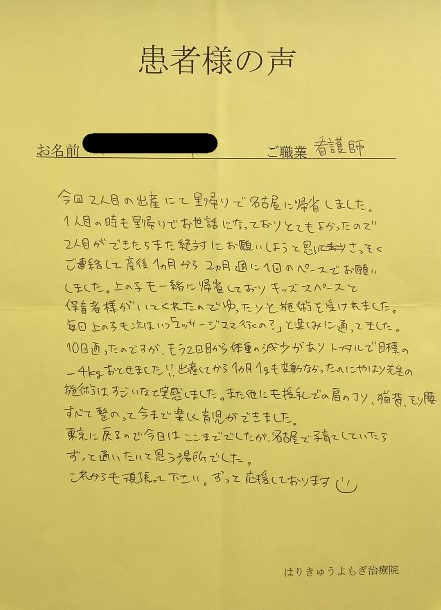 患者様の声
お名前 ご職業 看護師
今回2人目の出産にて里帰りで名古屋に帰省しました。
1人目の時も里帰りでお世話になっておりとてもよかったので
2人目ができたらまた絶対にお願いしようと思いさっそく
ご連絡して産後1ヵ月から2ヵ月週に1回のペースでお願い
しました。上の子も一緒に帰省しておりキッズスペースと
保育者様がいてくれたのでゆったりと施術を受けれました。
毎回上の子も次はいつ「マッサージココ行くの?」と楽しみに通ってました。
10回通ったのですが、もう2回目から体重の減少がありトータルで目標の
-4kgおとせました!!出産してから1ヵ月1gも変動なかったのにやはり先生の
施術はすごいなと実感しました。また他にも授乳での肩のコリ、猫背、そり腰
すべて整のって今まで楽しく育児ができました。
東京に戻るので今日はここまででしたが、名古屋で子育てしていたら
ずっと通いたいと思う場所でした。
これからも頑張って下さい。ずっと応援しております
はりきゅうよもぎ治療院